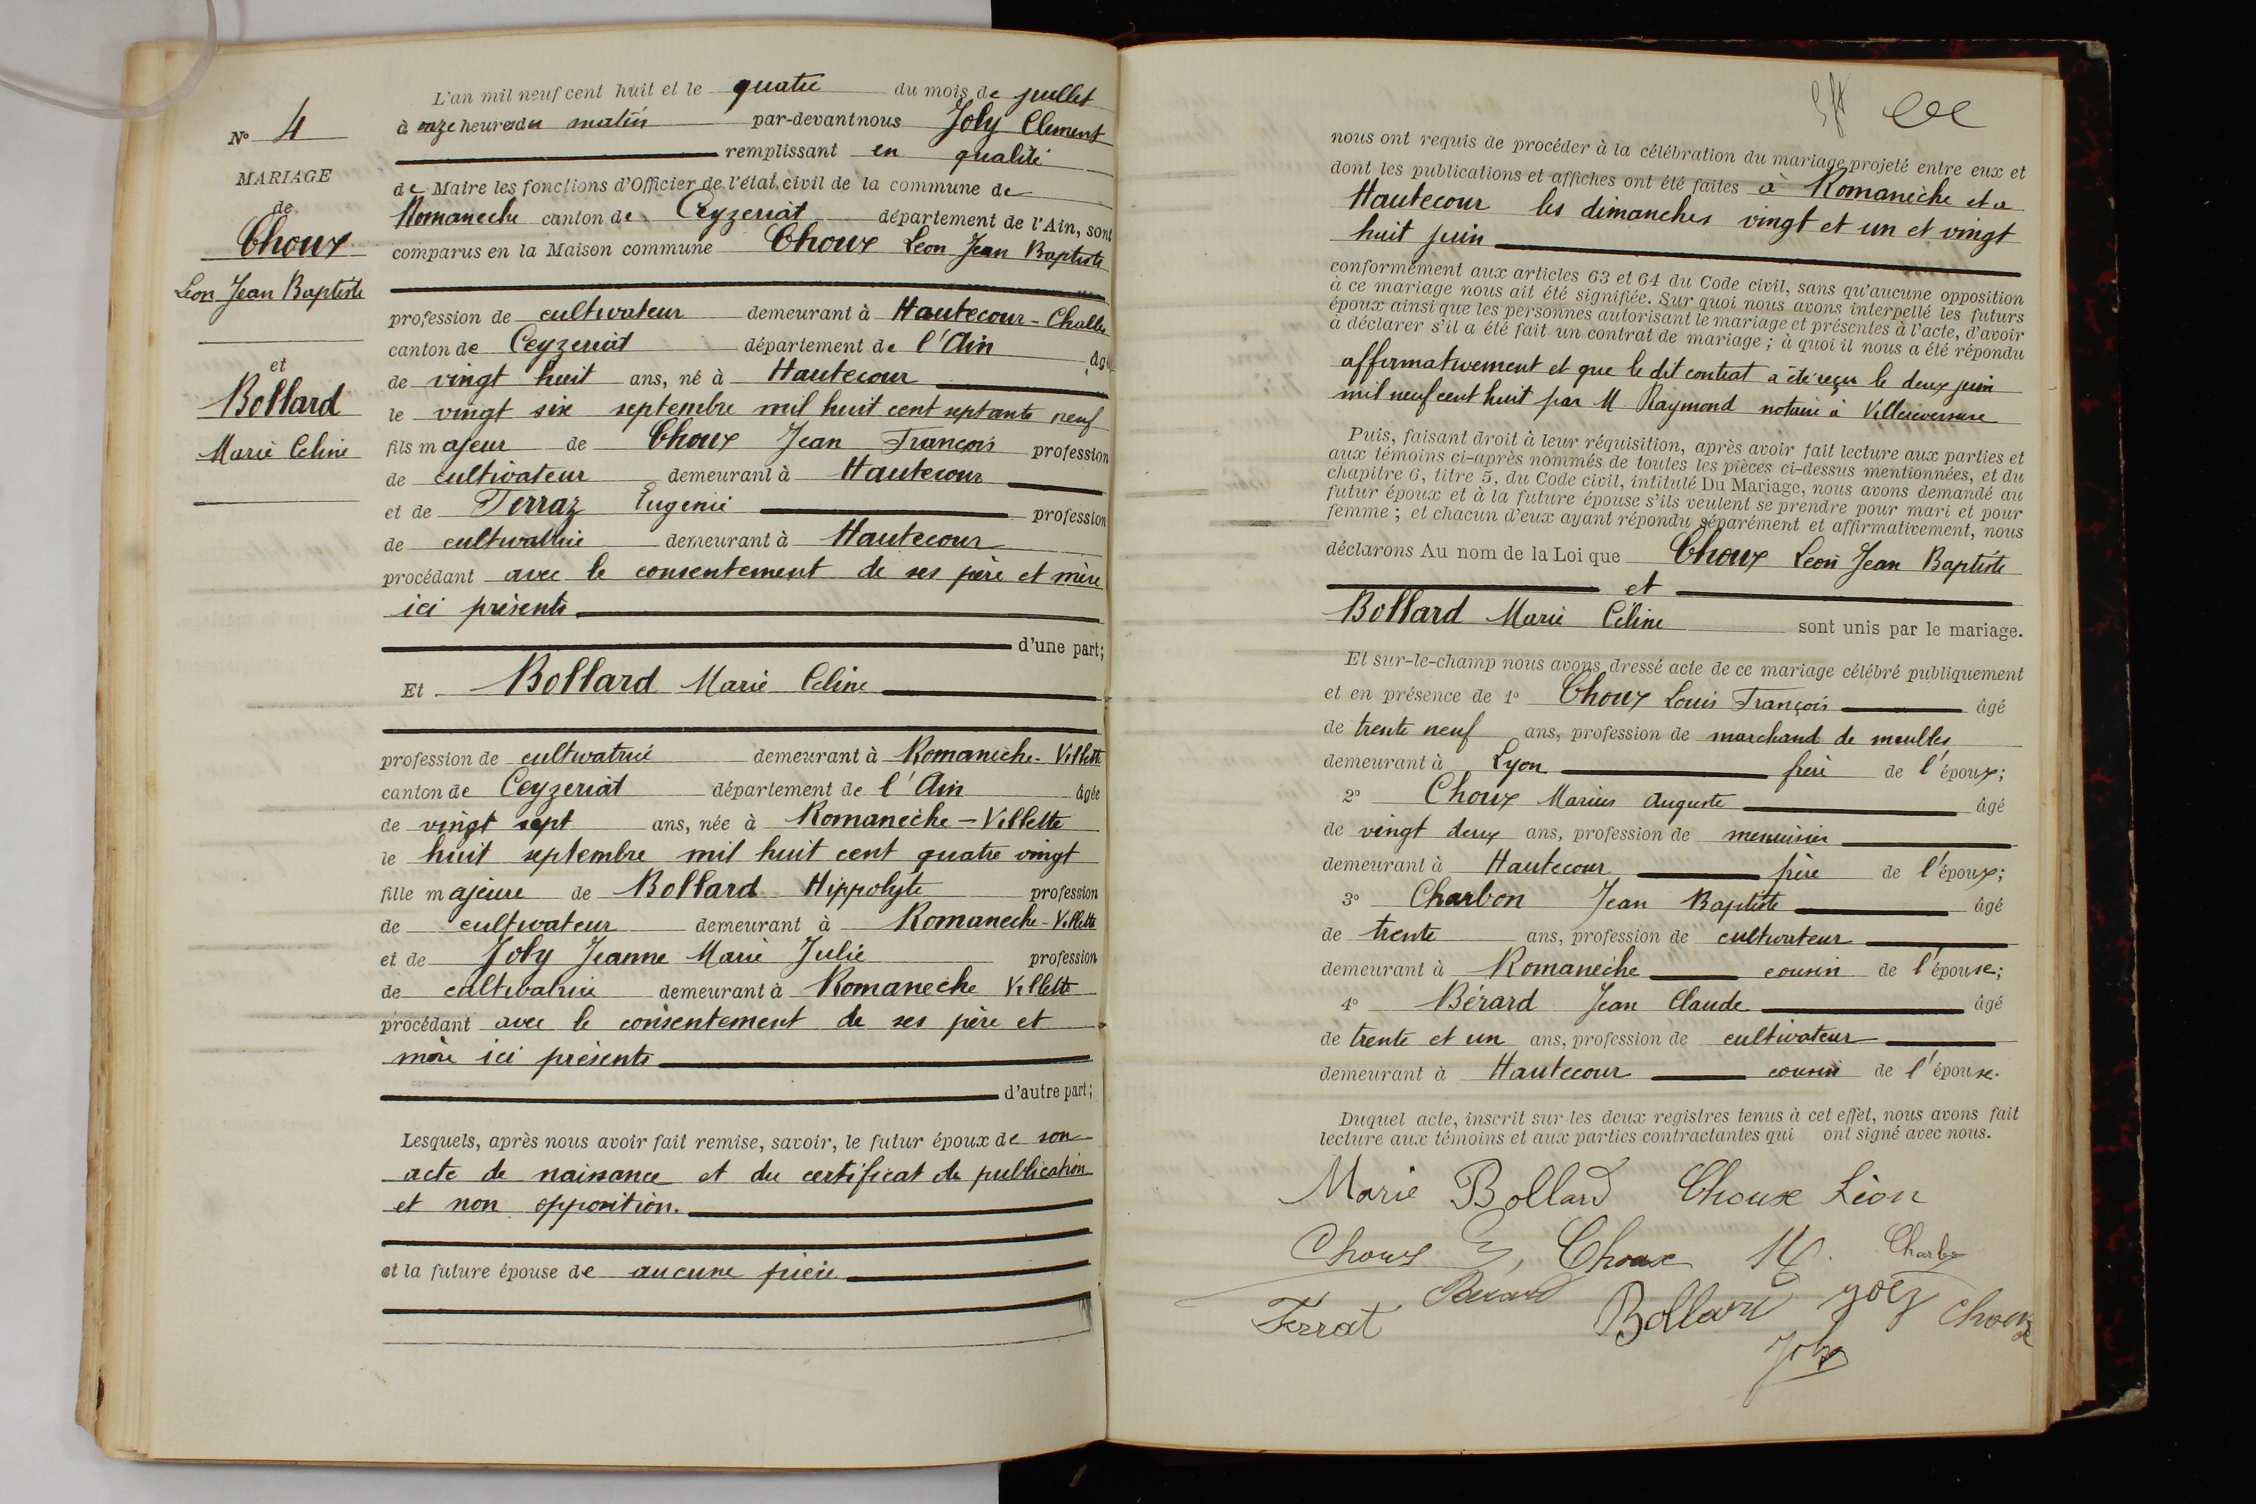 N° 4
MARIAGE
de
Choux
Leon Jean Baptiste
et
Bollard
Marie Celine
L'an mil neuf cent huit et le quatre du mois de juillet
à onze heures du matin par-devant nous Joly Clement
remplissant en qualité
de Maire les fonctions d'Officier de l'état civil de la commune de
Romaneche canton de Ceyzeriat département de l'Ain, sont
comparus en la Maison commune Choux Leon Jean Baptiste
profession de cultivateur demeurant à Hautecour - Challes
canton de Ceyzeriat département de l'Ain âgé
de vingt huit ans, né à Hautecour
le vingt six septembre mil huit cent septante neuf
fils majeur de Choux Jean François profession
de cultivateur demeurant à Hautecour
et de Terraz Eugenie profession
de cultivatrice demeurant à Hautecour
procédant avec le consentement de ses père et mère
ici présents
d'une part;
Et Bollard Marie Celine
profession de cultivatrice demeurant à Romanèche - Villette
canton de Ceyzeriat département de l'Ain âgée
de vingt sept ans, née à Romanèche - Villette
le huit septembre mil huit cent quatre vingt
fille majeure de Bollard Hippolyte profession
de cultivateur demeurant à Romaneche - Villette
et de Joly Jeanne Marie Julie profession
de cultivatrice demeurant à Romaneche Villette
procédant avec le consentement de ses père et
mère ici présents
d'autre part;
Lesquels, après nous avoir fait remise, savoir, le futur époux de son
acte de naissance et du certificat de publication
et non opposition.
et la future épouse de aucune pièce
nous ont requis de procéder à la célébration du mariage projeté entre eux et
dont les publications et affiches ont été faites à Romanèche et a
Hautecour les dimanches vingt et un et vingt
huit juin
conformément aux articles 63 et 64 du Code civil, sans qu'aucune opposition
à ce mariage nous ait été signifiée. Sur quoi nous avons interpellé les futurs
époux ainsi que les personnes autorisant le mariage et présentes à l'acte, d'avoir
à déclarer s'il a été fait un contrat de mariage; à quoi il nous a été répondu
affirmativement et que le dit contrat a été reçu le deux juin
mil neuf cent huit par M Raymond notaire à Villereversure
Puis, faisant droit à leur réquisition, après avoir fait lecture aux parties et
aux témoins ci-après nommés de toutes les pièces ci-dessus mentionnées, et du
chapitre 6, titre 5, du Code civil, intitulé Du Mariage, nous avons demandé au
futur époux et à la future épouse s'ils veulent se prendre pour mari et pour
femme; et chacun d'eux ayant répondu séparément et affirmativement, nous
déclarons Au nom de la Loi que Choux Leon Jean Baptiste
et
Bollard Marie Céline sont unis par le mariage.
Et sur-le-champ nous avons dressé acte de ce mariage célébré publiquement
et en présence de 1° Choux Louis François âgé
de trente neuf ans, profession de marchand de meubles
demeurant à Lyon frère de l'époux;
2° Choux Marius Auguste âgé
de vingt deux ans, profession de menuisier
demeurant à Hautecour frère de l'époux;
3° Charbon Jean Baptiste âgé
de trente ans, profession de cultivateur
demeurant à Romanèche cousin de l'épouse;
4° Bérard Jean Claude âgé
de trente et un ans, profession de cultivateur
demeurant à Hautecour cousin de l'épouse.
Duquel acte, inscrit sur les deux registres tenus à cet effet, nous avons fait
lecture aux témoins et aux parties contractantes qui ont signé avec nous.
Marie Bollard Choux Léon
Choux Choux M. Charbon
Berard
Ferrat Bollard Choux
Joly